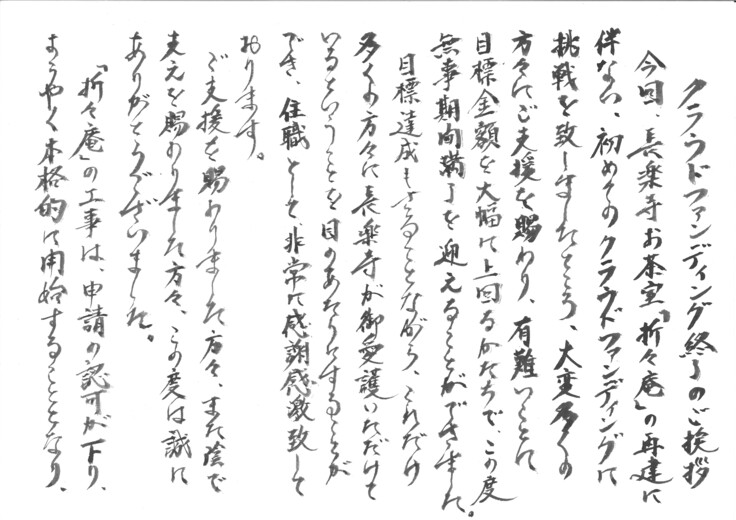 クラウドファンディング終了のご挨拶
今回、長楽寺お茶室「折々庵」の再建に
伴ない、初めてのクラウドファンディングに
挑戦を致しましたところ、大変多くの
方々にご支援を賜わり、有難いことに
目標金額を大幅に上回るかたちで、この度
無事期間満了を迎えることができました。
目標達成もさることながら、これだけ
多くの方々に長楽寺が御愛護いただけて
いるということを目のあたりにすることが
でき、住職として非常に感謝感激致して
おります。
ご支援を賜わりました方々、また陰で
支えを賜わりました方々、この度は誠に
ありがとうございました。
「折々庵」の工事は、申請の認可が下り、
ようやく本格的に開始することとなり、